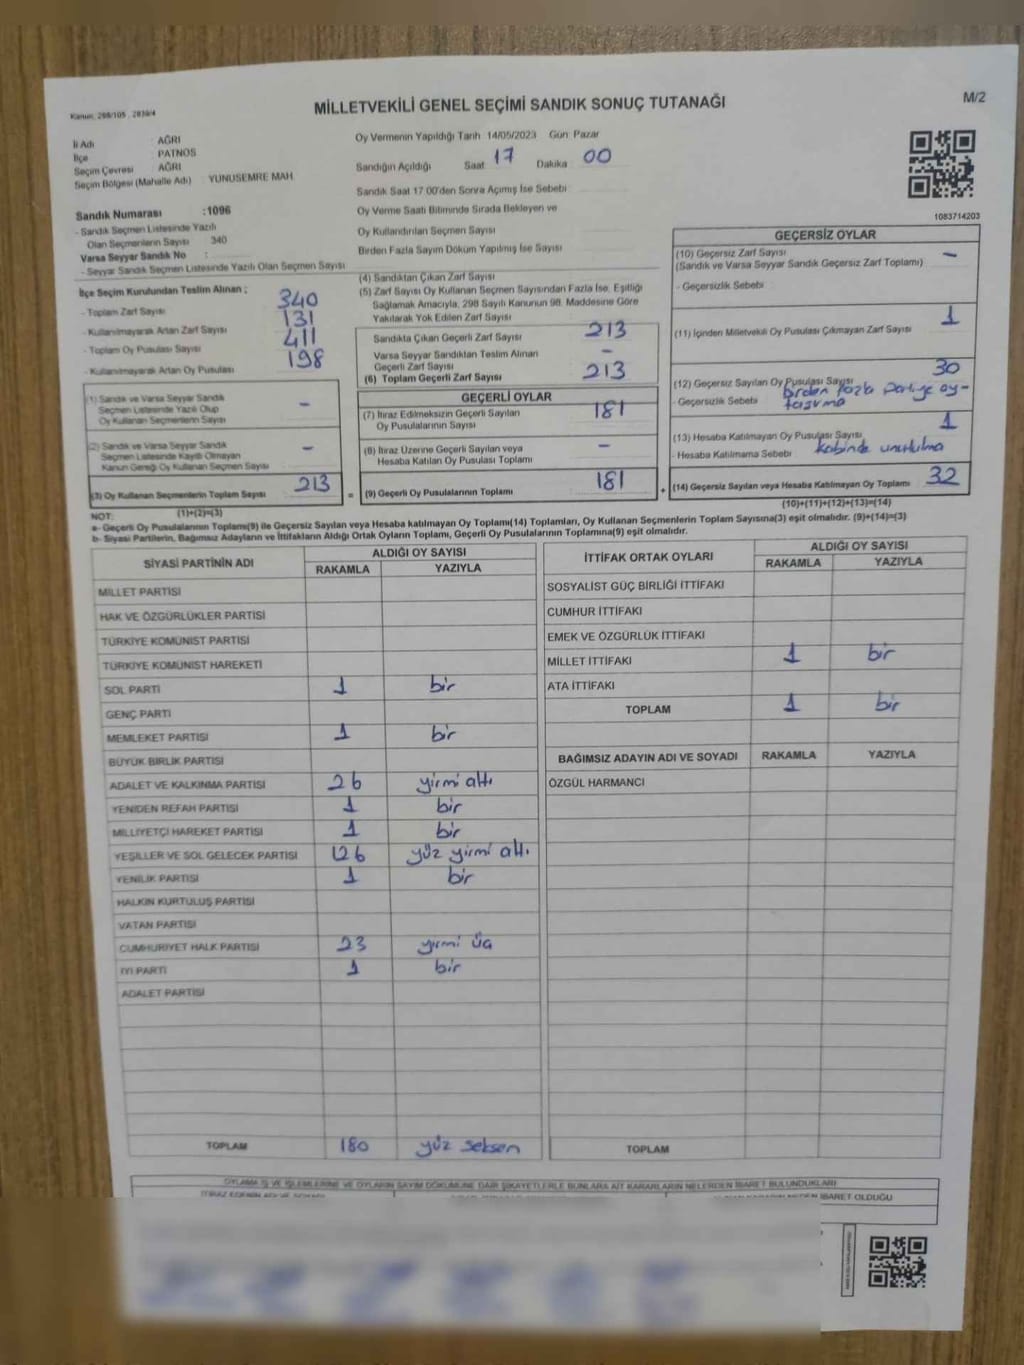 Kanun, 298/105 , 2839/4
MİLLETVEKİLİ GENEL SEÇİMİ SANDIK SONUÇ TUTANAĞI
M/2
İl Adı AĞRI
İlçe PATNOS
Seçim Çevresi AĞRI
Seçim Bölgesi (Mahalle Adı) YUNUSEMRE MAH
Sandık Numarası :1096
- Sandık Seçmen Listesinde Yazılı
Olan Seçmenlerin Sayısı 340
Varsa Seyyar Sandık No :
- Seyyar Sandık Seçmen Listesinde Yazılı Olan Seçmen Sayısı
Oy Vermenin Yapıldığı Tarih 14/05/2023 Gün Pazar
Sandığın Açıldığı Saat 17 Dakika 00
Sandık Saat 17 00'den Sonra Açımış İse Sebebi
Oy Verme Saati Bitiminde Sırada Bekleyen ve
Oy Kullandırılan Seçmen Sayısı
Birden Fazla Sayım Döküm Yapılmış İse Sayısı
1083714203
İlçe Seçim Kurulundan Teslim Alınan ;
- Toplam Zarf Sayısı 340
- Kullanılmayarak Artan Zarf Sayısı 131
- Toplam Oy Pusulası Sayısı 411
- Kullanılmayarak Artan Oy Pusulası 198
(1) Sandık ve Varsa Seyyar Sandık
Seçmen Listesinde Yazılı Olup
Oy Kullanan Seçmenlerin Sayısı -
(2) Sandık ve Varsa Seyyar Sandık
Seçmen Listesinde Kayıtlı Olmayan
Kanun Gereği Oy Kullanan Seçmen Sayısı -
(3) Oy Kullanan Seçmenlerin Toplam Sayısı 213
(1)+(2)=(3)
(4) Sandıktan Çıkan Zarf Sayısı
(5) Zarf Sayısı Oy Kullanan Seçmen Sayısından Fazla İse, Eşitliği
Sağlamak Amacıyla, 298 Sayılı Kanunun 98. Maddesine Göre
Yakılarak Yok Edilen Zarf Sayısı
Sandıkta Çıkan Geçerli Zarf Sayısı 213
Varsa Seyyar Sandıktan Teslim Alınan
Geçerli Zarf Sayısı -
(6) Toplam Geçerli Zarf Sayısı 213
GEÇERLİ OYLAR
(7) İtiraz Edilmeksizin Geçerli Sayılan
Oy Pusulalarının Sayısı 181
(8) İtiraz Üzerine Geçerli Sayılan veya
Hesaba Katılan Oy Pusulası Toplamı -
= (9) Geçerli Oy Pusulalarının Toplamı 181 +
GEÇERSİZ OYLAR
(10) Geçersiz Zarf Sayısı
(Sandık ve Varsa Seyyar Sandık Geçersiz Zarf Toplamı) -
- Geçersizlik Sebebi
(11) İçinden Milletvekili Oy Pusulası Çıkmayan Zarf Sayısı 1
(12) Geçersiz Sayılan Oy Pusulası Sayısı 30
- Geçersizlik Sebebi birden fazla partiye oy-
(13) Hesaba Katılmayan Oy Pusulası Sayısı 1
- Hesaba Katılmama Sebebi kabinde unutulma
(14) Geçersiz Sayılan veya Hesaba Katılmayan Oy Toplamı 32
(10)+(11)+(12)+(13)=(14)
NOT:
a- Geçerli Oy Pusulalarının Toplamı(9) ile Geçersiz Sayılan veya Hesaba katılmayan Oy Toplamı(14) Toplamları, Oy Kullanan Seçmenlerin Toplam Sayısına(3) eşit olmalıdır. (9)+(14)=(3)
b- Siyasi Partilerin, Bağımsız Adayların ve İttifakların Aldığı Ortak Oyların Toplamı, Geçerli Oy Pusulalarının Toplamına(9) eşit olmalıdır.
SİYASİ PARTİNİN ADI ALDIĞI OY SAYISI
RAKAMLA YAZIYLA
MİLLET PARTİSİ
HAK VE ÖZGÜRLÜKLER PARTİSİ
TÜRKİYE KOMÜNİST PARTİSİ
TÜRKİYE KOMÜNİST HAREKETİ
SOL PARTİ 1 bir
GENÇ PARTİ
MEMLEKET PARTİSİ 1 bir
BÜYÜK BİRLİK PARTİSİ
ADALET VE KALKINMA PARTİSİ 26 yirmi altı
YENİDEN REFAH PARTİSİ 1 bir
MİLLİYETÇİ HAREKET PARTİSİ 1 bir
YEŞİLLER VE SOL GELECEK PARTİSİ 126 yüz yirmi altı
YENİLİK PARTİSİ 1 bir
HALKIN KURTULUŞ PARTİSİ
VATAN PARTİSİ
CUMHURİYET HALK PARTİSİ 23 yirmi üç
İYİ PARTİ 1 bir
ADALET PARTİSİ
TOPLAM 180 yüz seksen
İTTİFAK ORTAK OYLARI ALDIĞI OY SAYISI
RAKAMLA YAZIYLA
SOSYALİST GÜÇ BİRLİĞİ İTTİFAKI
CUMHUR İTTİFAKI
EMEK VE ÖZGÜRLÜK İTTİFAKI
MİLLET İTTİFAKI 1 bir
ATA İTTİFAKI
TOPLAM 1 bir
BAĞIMSIZ ADAYIN ADI VE SOYADI RAKAMLA YAZIYLA
ÖZGÜL HARMANCI
TOPLAM
OYLAMA İŞ VE İŞLEMLERİNE VE OYLARIN SAYIM DÖKÜMÜNE DAİR ŞİKAYETLERLE BUNLARA AİT KARARLARIN NELERDEN İBARET BULUNDUKLARI
İTİRAZ EDENİN ADI VE SOYADI
İBARET OLDUĞU